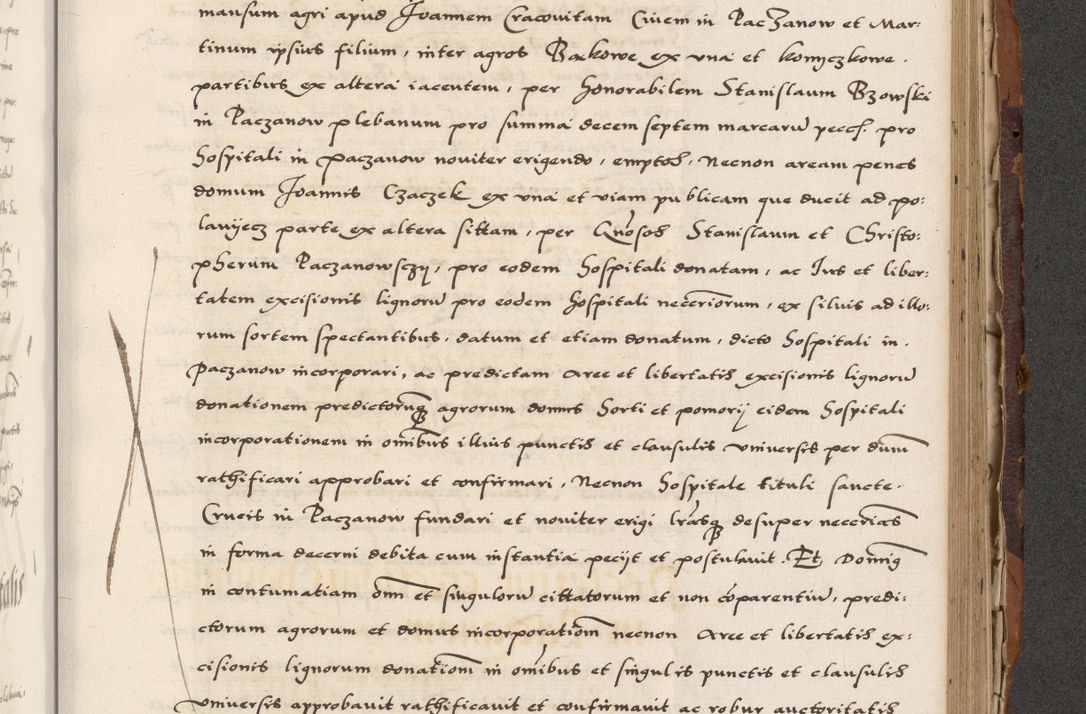 mansum agri apud Joannem Cracovitam Civem in PacZanow et Mar:
tinum ipsius filium, inter agros Bzkowe ex una et konyczkowe.
partibus ex altera iacentem, per honorabilem Stanislaum Bzowski
in Paczanow plebanum pro summa decem septem marcarũ pecc. pro
Hospitali in paczanow noviter erigendo, emptos, Necnon aream penes
domum Joannis Czaczek ex una et viam publicam que ducit ad po:
lavijecz parte ex altera sittam, per Gnosos Stanislaum et Christo:
pherum Paczanowsczy, pro eodem Hospitali donatam, ac Ius et liber:
tatem excisionis lignorũ pro eodem Hospitali necceriorum, ex silvis ad illo:
rum sortem spectantibus, datum et etiam donatum, dicto Hospitali in.
Paczanow incorporari, ac predictam Aree et libertatis excisionis lignorũ
donationem predictorumq agrorum domus Horti et pomorij eidem Hospitali
incorporationem in omibus illius punctis et clausulis universis per dnum
rathificari approbari et confirmari, Necnon Hospitale tituli sancte.
Crucis in Paczanow fundari et noviter erigi lrasq desuper neccerias
in forma decerni debita cum instantia pecijt et postulavit. Et Doming
in contumatiam oim et singulorũ cittatorum et non cóparentiũ, predi:
ctorum agrorum et domus incorporatiom necnon Aree et libertatis ex:
cisionis lignorum donatiom in omibus et singulis punctis et clausulis
universis approbavit rathificavit et confirmavit ac robur auctoritatis